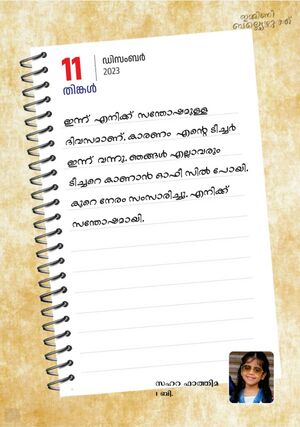 ഇമ്മിണി
ബല്ല്യെഴുത്ത്
11
തിങ്കൾ
ഡിസംബർ
2023
ഇന്ന് എനിക്ക് സന്തോഷമുള്ള
ദിവസമാണ്. കാരണം എന്റെ ടീച്ചർ
ഇന്ന് വന്നു. ഞങ്ങൾ എല്ലാവരും
ടീച്ചറെ കാണാൻ ഓഫീ സിൽ പോയി.
കുറെ നേരം സംസാരിച്ചു. എനിക്ക്
സന്തോഷമായി.
സഹറ ഫാത്തിമ
1 ബി.